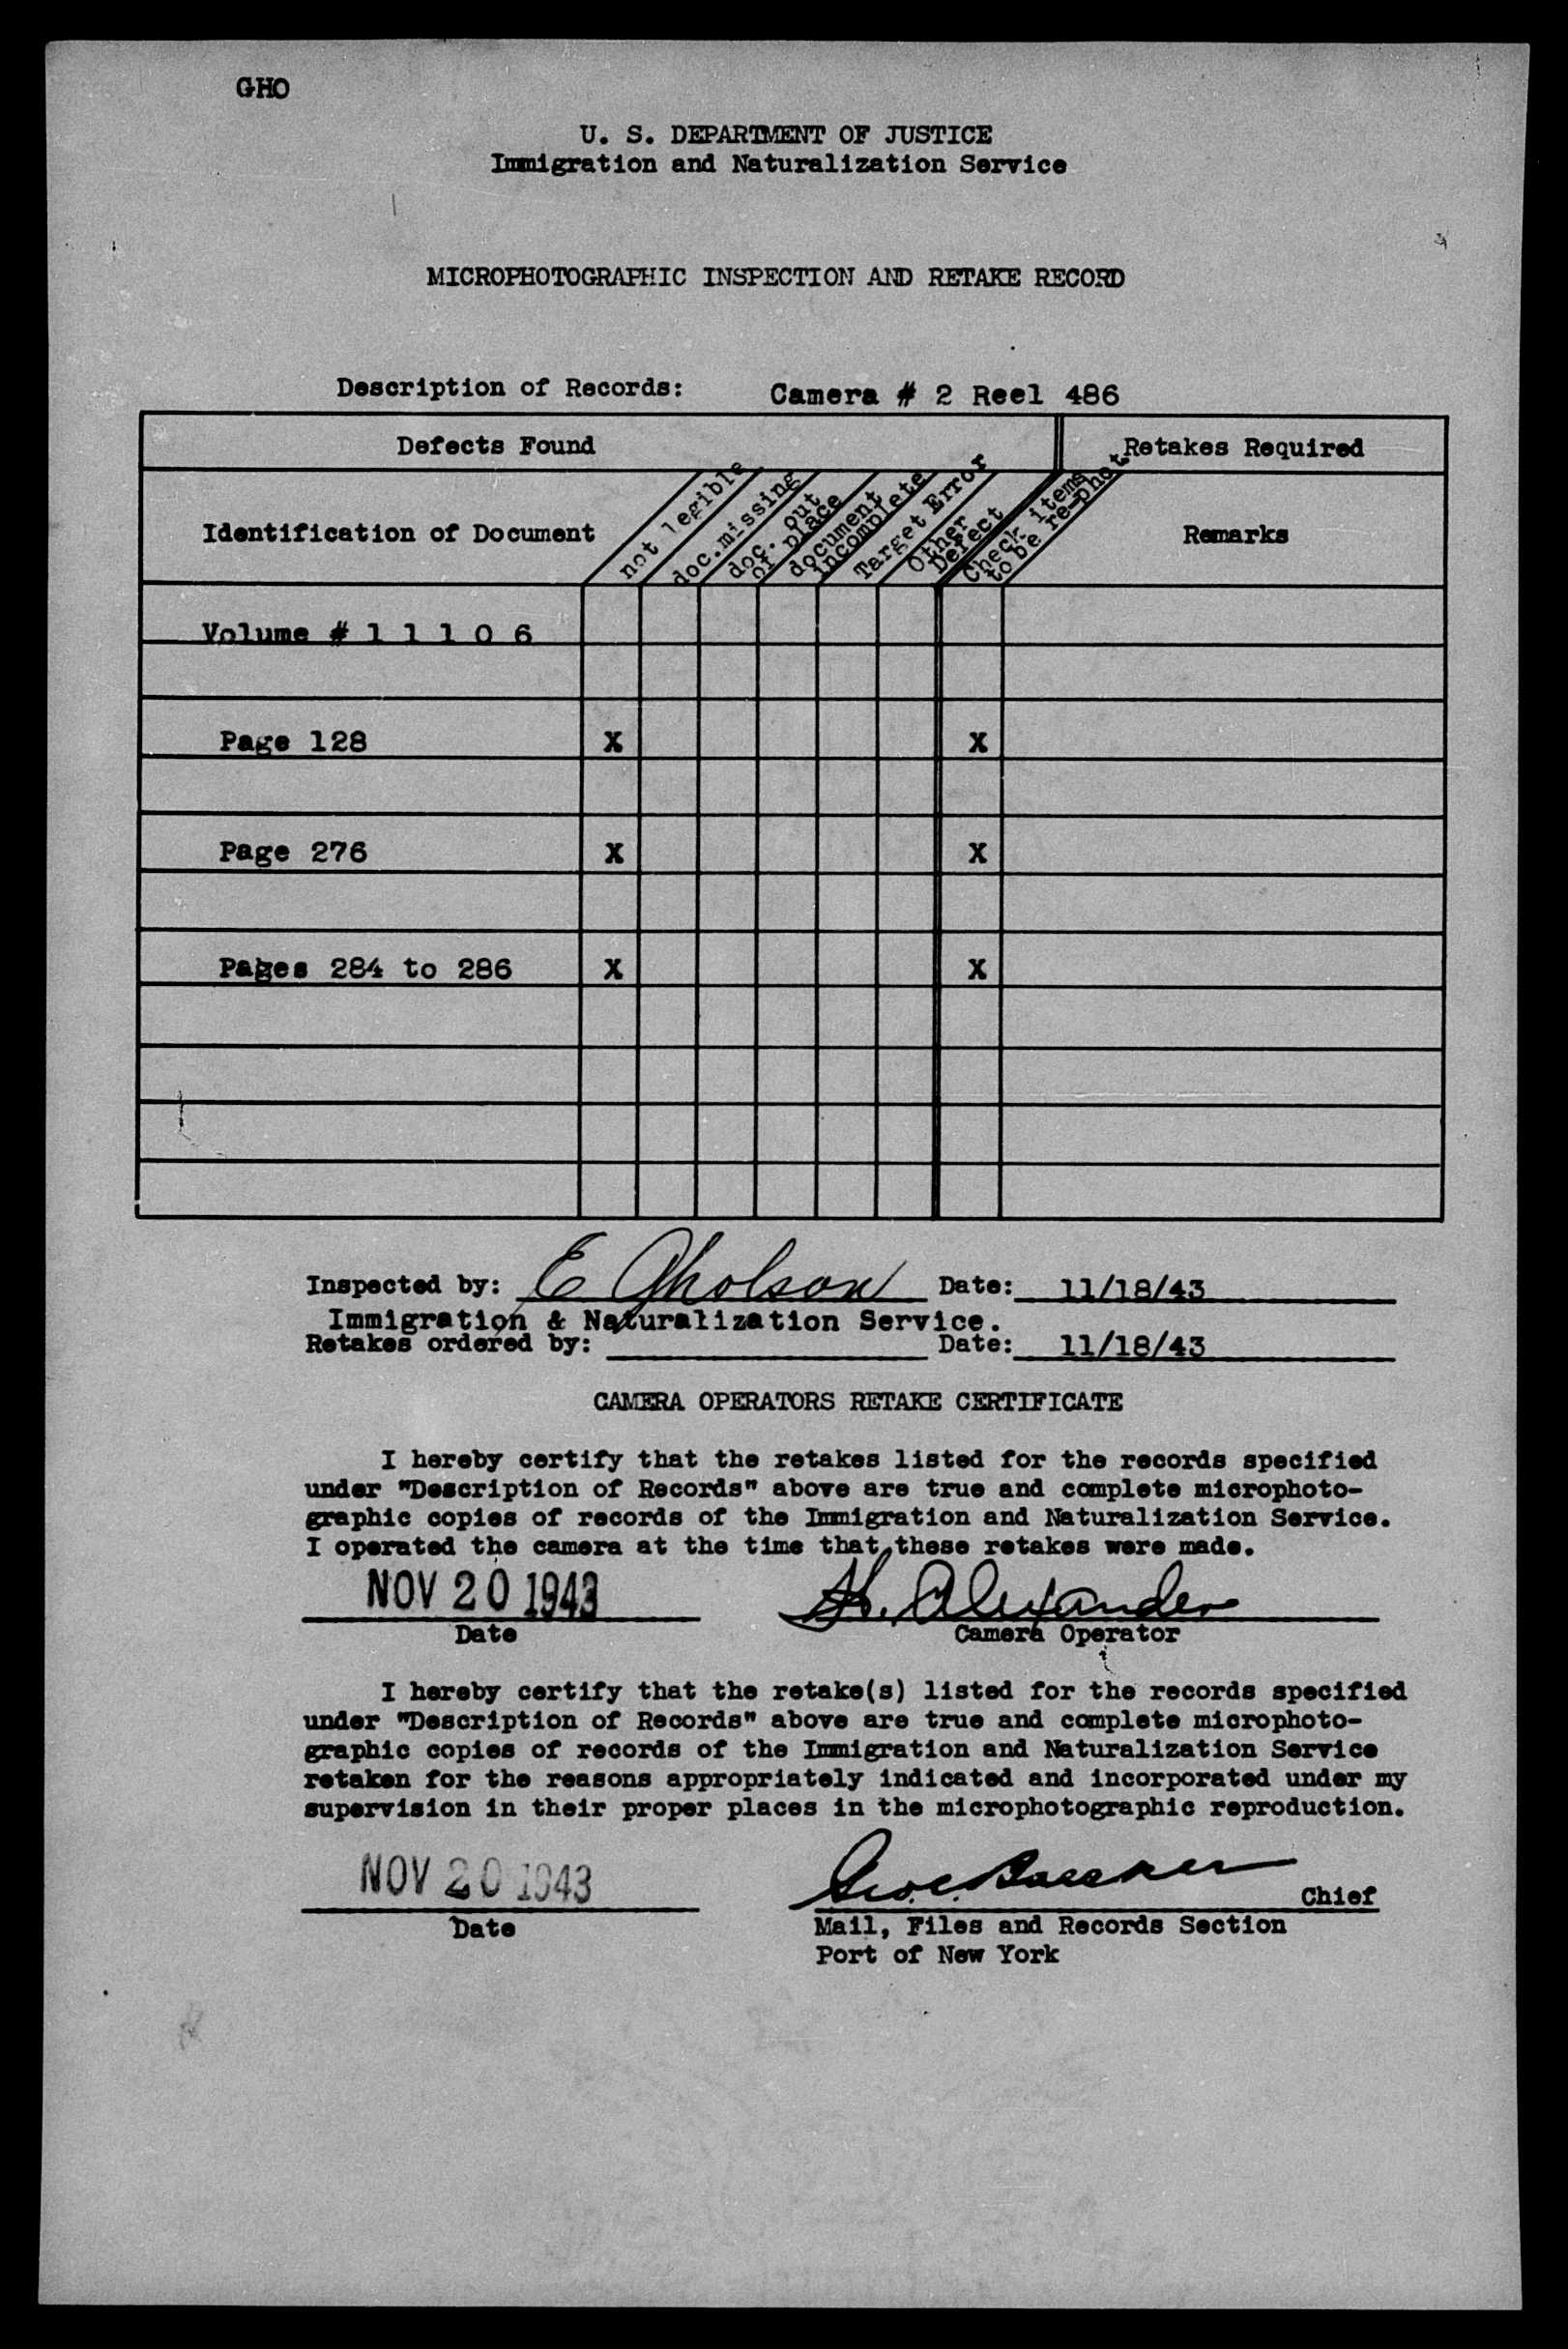 GHO
U. S. DEPARTMENT OF JUSTICE
Immigration and Naturalization Service
MICROPHOTOGRAPHIC INSPECTION AND RETAKE RECORD
Description of Records: Camera # 2 Reel 486
Defects Found Retakes Required
Identification of Document
not legible
doc.missing
doc. out
of place
document
incomplete
Target Error
Other
Defect
Check items
to be re-phot
Remarks
Volume # 1 1 1 0 6
Page 128 X X
Page 276 X X
Pages 284 to 286 X X
Inspected by: E Gholson Date: 11/18/43
Immigration & Naturalization Service.
Retakes ordered by: Date: 11/18/43
CAMERA OPERATORS RETAKE CERTIFICATE
I hereby certify that the retakes listed for the records specified
under "Description of Records" above are true and complete microphoto-
graphic copies of records of the Immigration and Naturalization Service.
I operated the camera at the time that these retakes were made.
NOV 20 1943 H. Alexander
Date Camera Operator
I hereby certify that the retake(s) listed for the records specified
under "Description of Records" above are true and complete microphoto-
graphic copies of records of the Immigration and Naturalization Service
retaken for the reasons appropriately indicated and incorporated under my
supervision in their proper places in the microphotographic reproduction.
NOV 20 1943 Chief
Date Mail, Files and Records Section
Port of New York